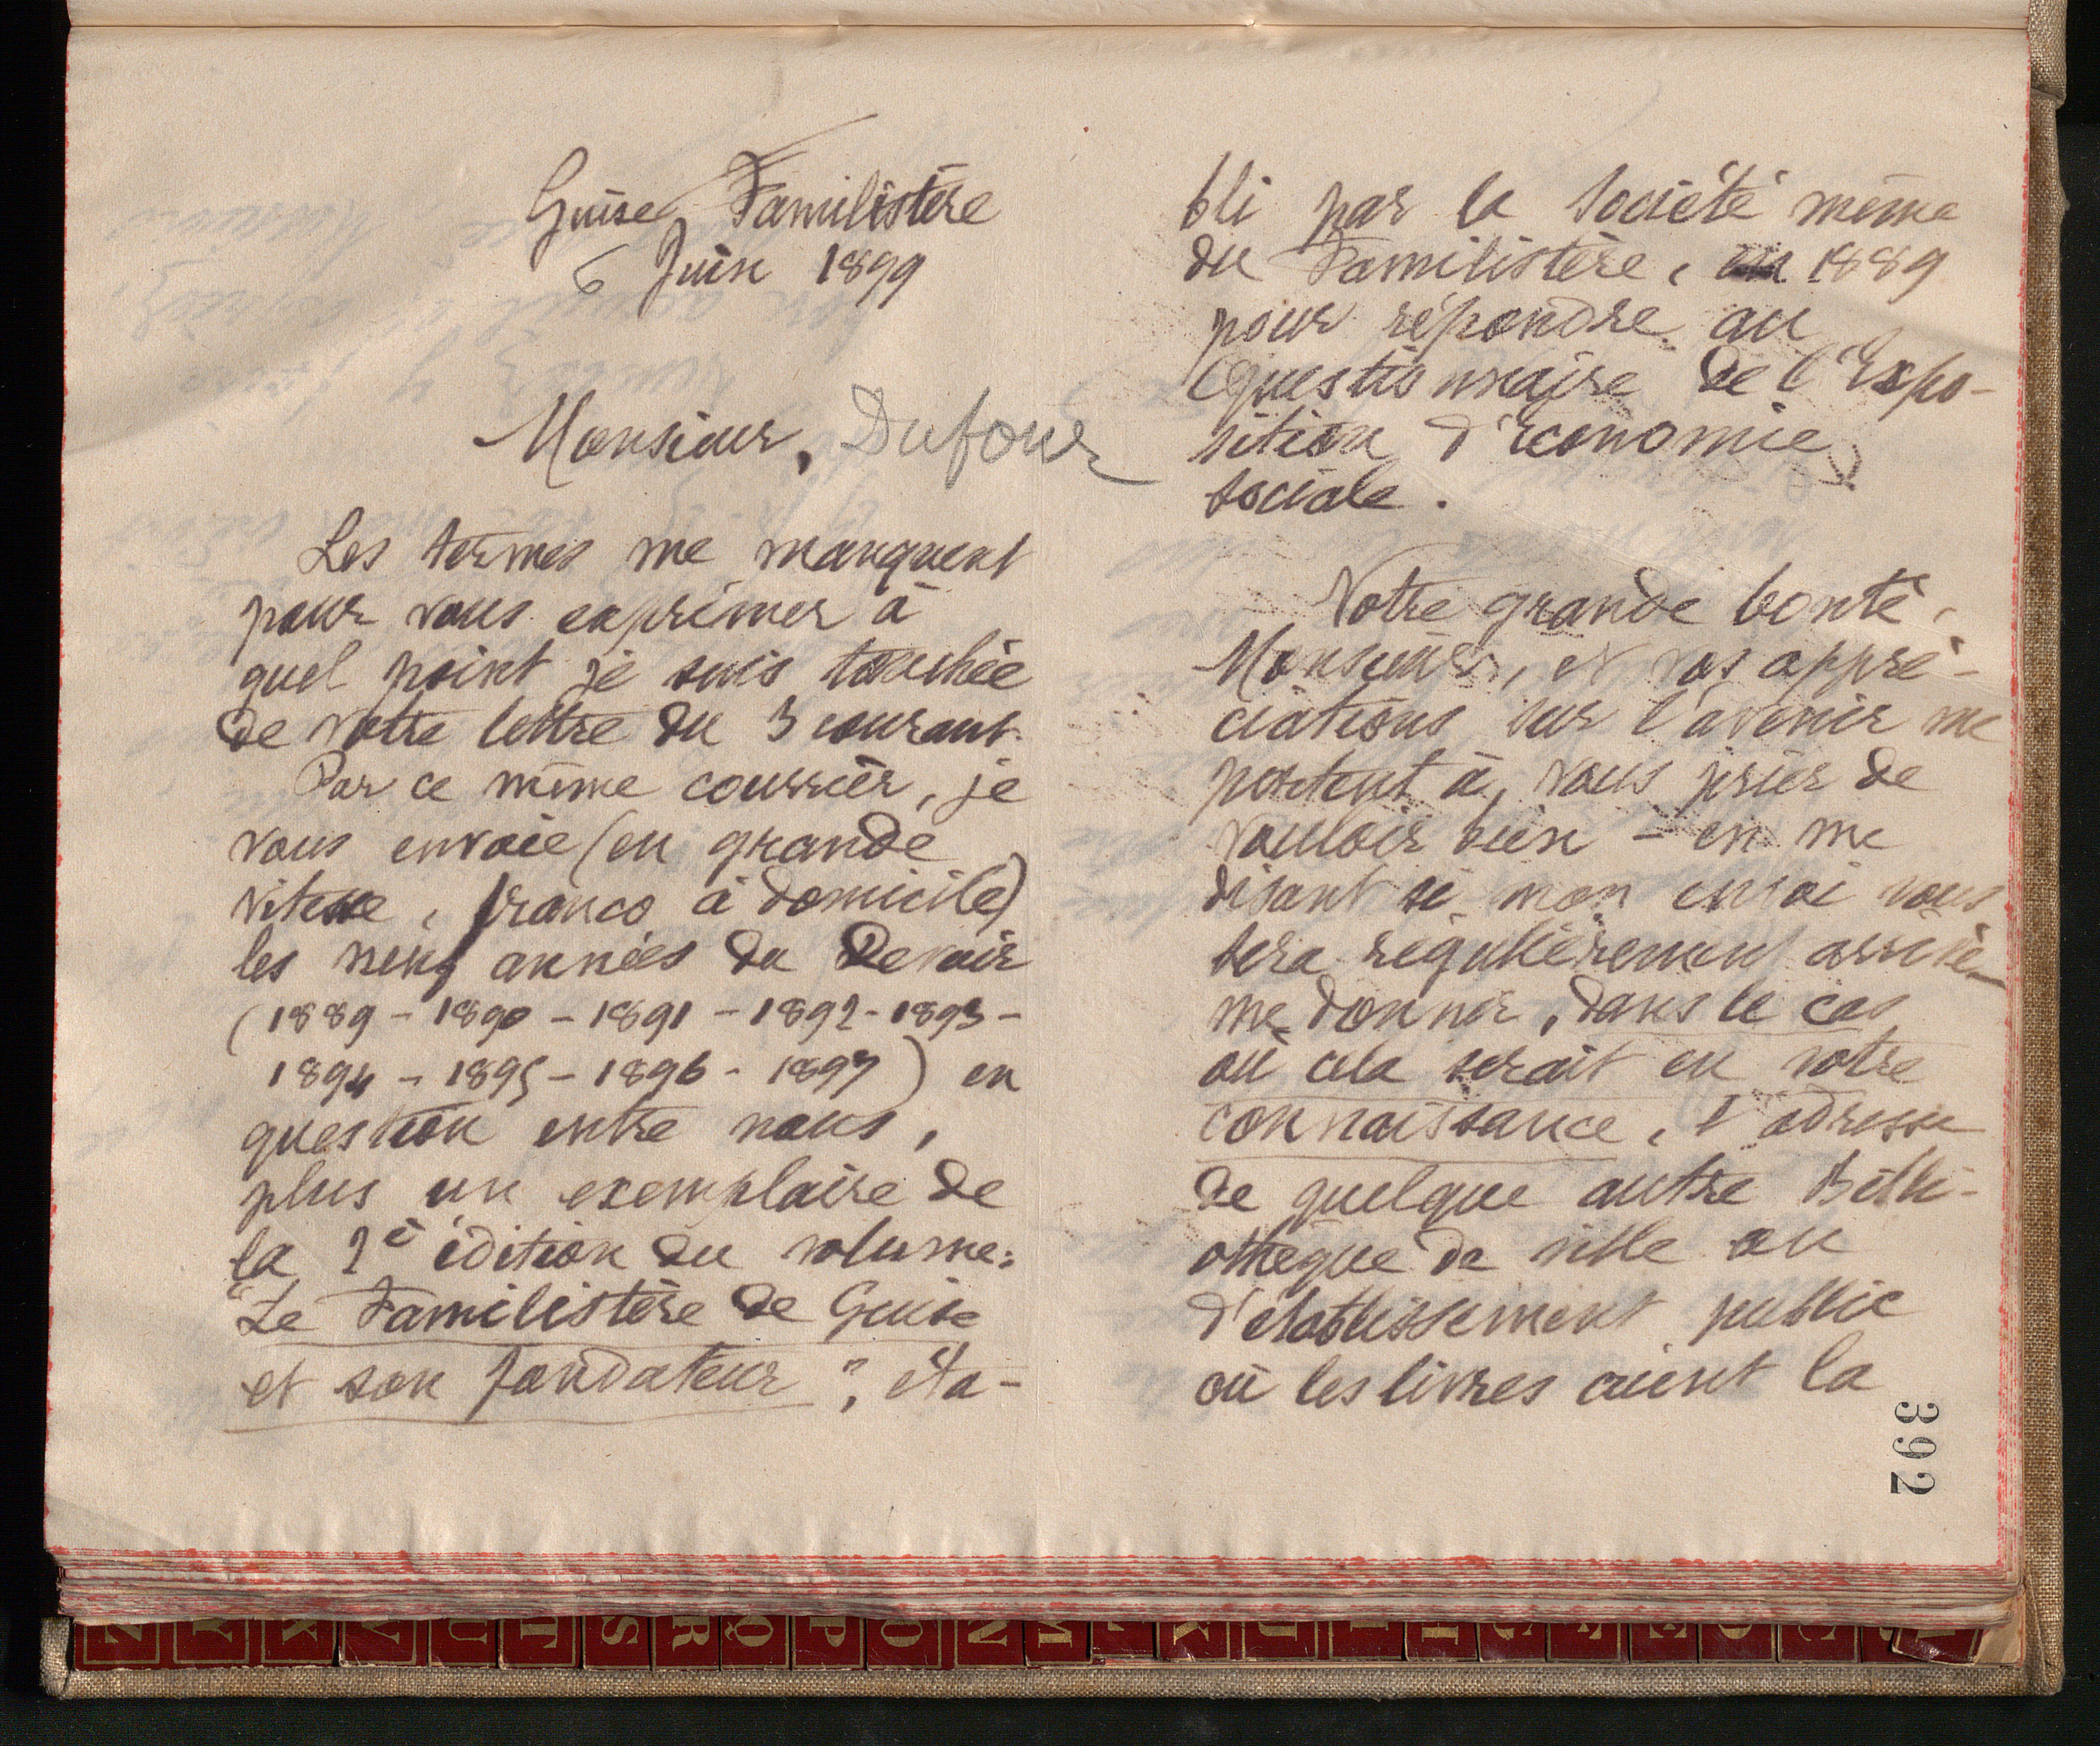 Guise Familistère
6 Juin 1899
Monsieur, Dufour
Les termes me manquent
pour vous exprimer à
quel point je suis touchée
de votre lettre du 3 courant.
Par ce même courrier, je
vous envoie (en grande
vitesse, franco à domicile)
les neuf années du Devoir
(1889 - 1890 - 1891 - 1892 - 1893 -
1894 - 1895 - 1896 - 1897) en
question entre nous,
plus un exemplaire de
la 2e édition du volume:
"Le Familistère de Guise
et son fondateur", éta-
bli par la Société même
du Familistère, en 1889
pour répondre au
Questionnaire de l'Expo-
sition d'Économie
sociale.
Votre grande bonté,
Monsieur, et vos appré-
ciations sur l'avenir me
portent à vous prier de
vouloir bien - en me
disant si mon envoi vous
sera régulièrement arrivé -
me donner, dans le cas
où cela serait en votre
connaissance, l'adresse
de quelque autre Bibli-
othèque de ville ou
d'établissement public
où les livres aient la
392
Z Y X V U T S R Q P O N M